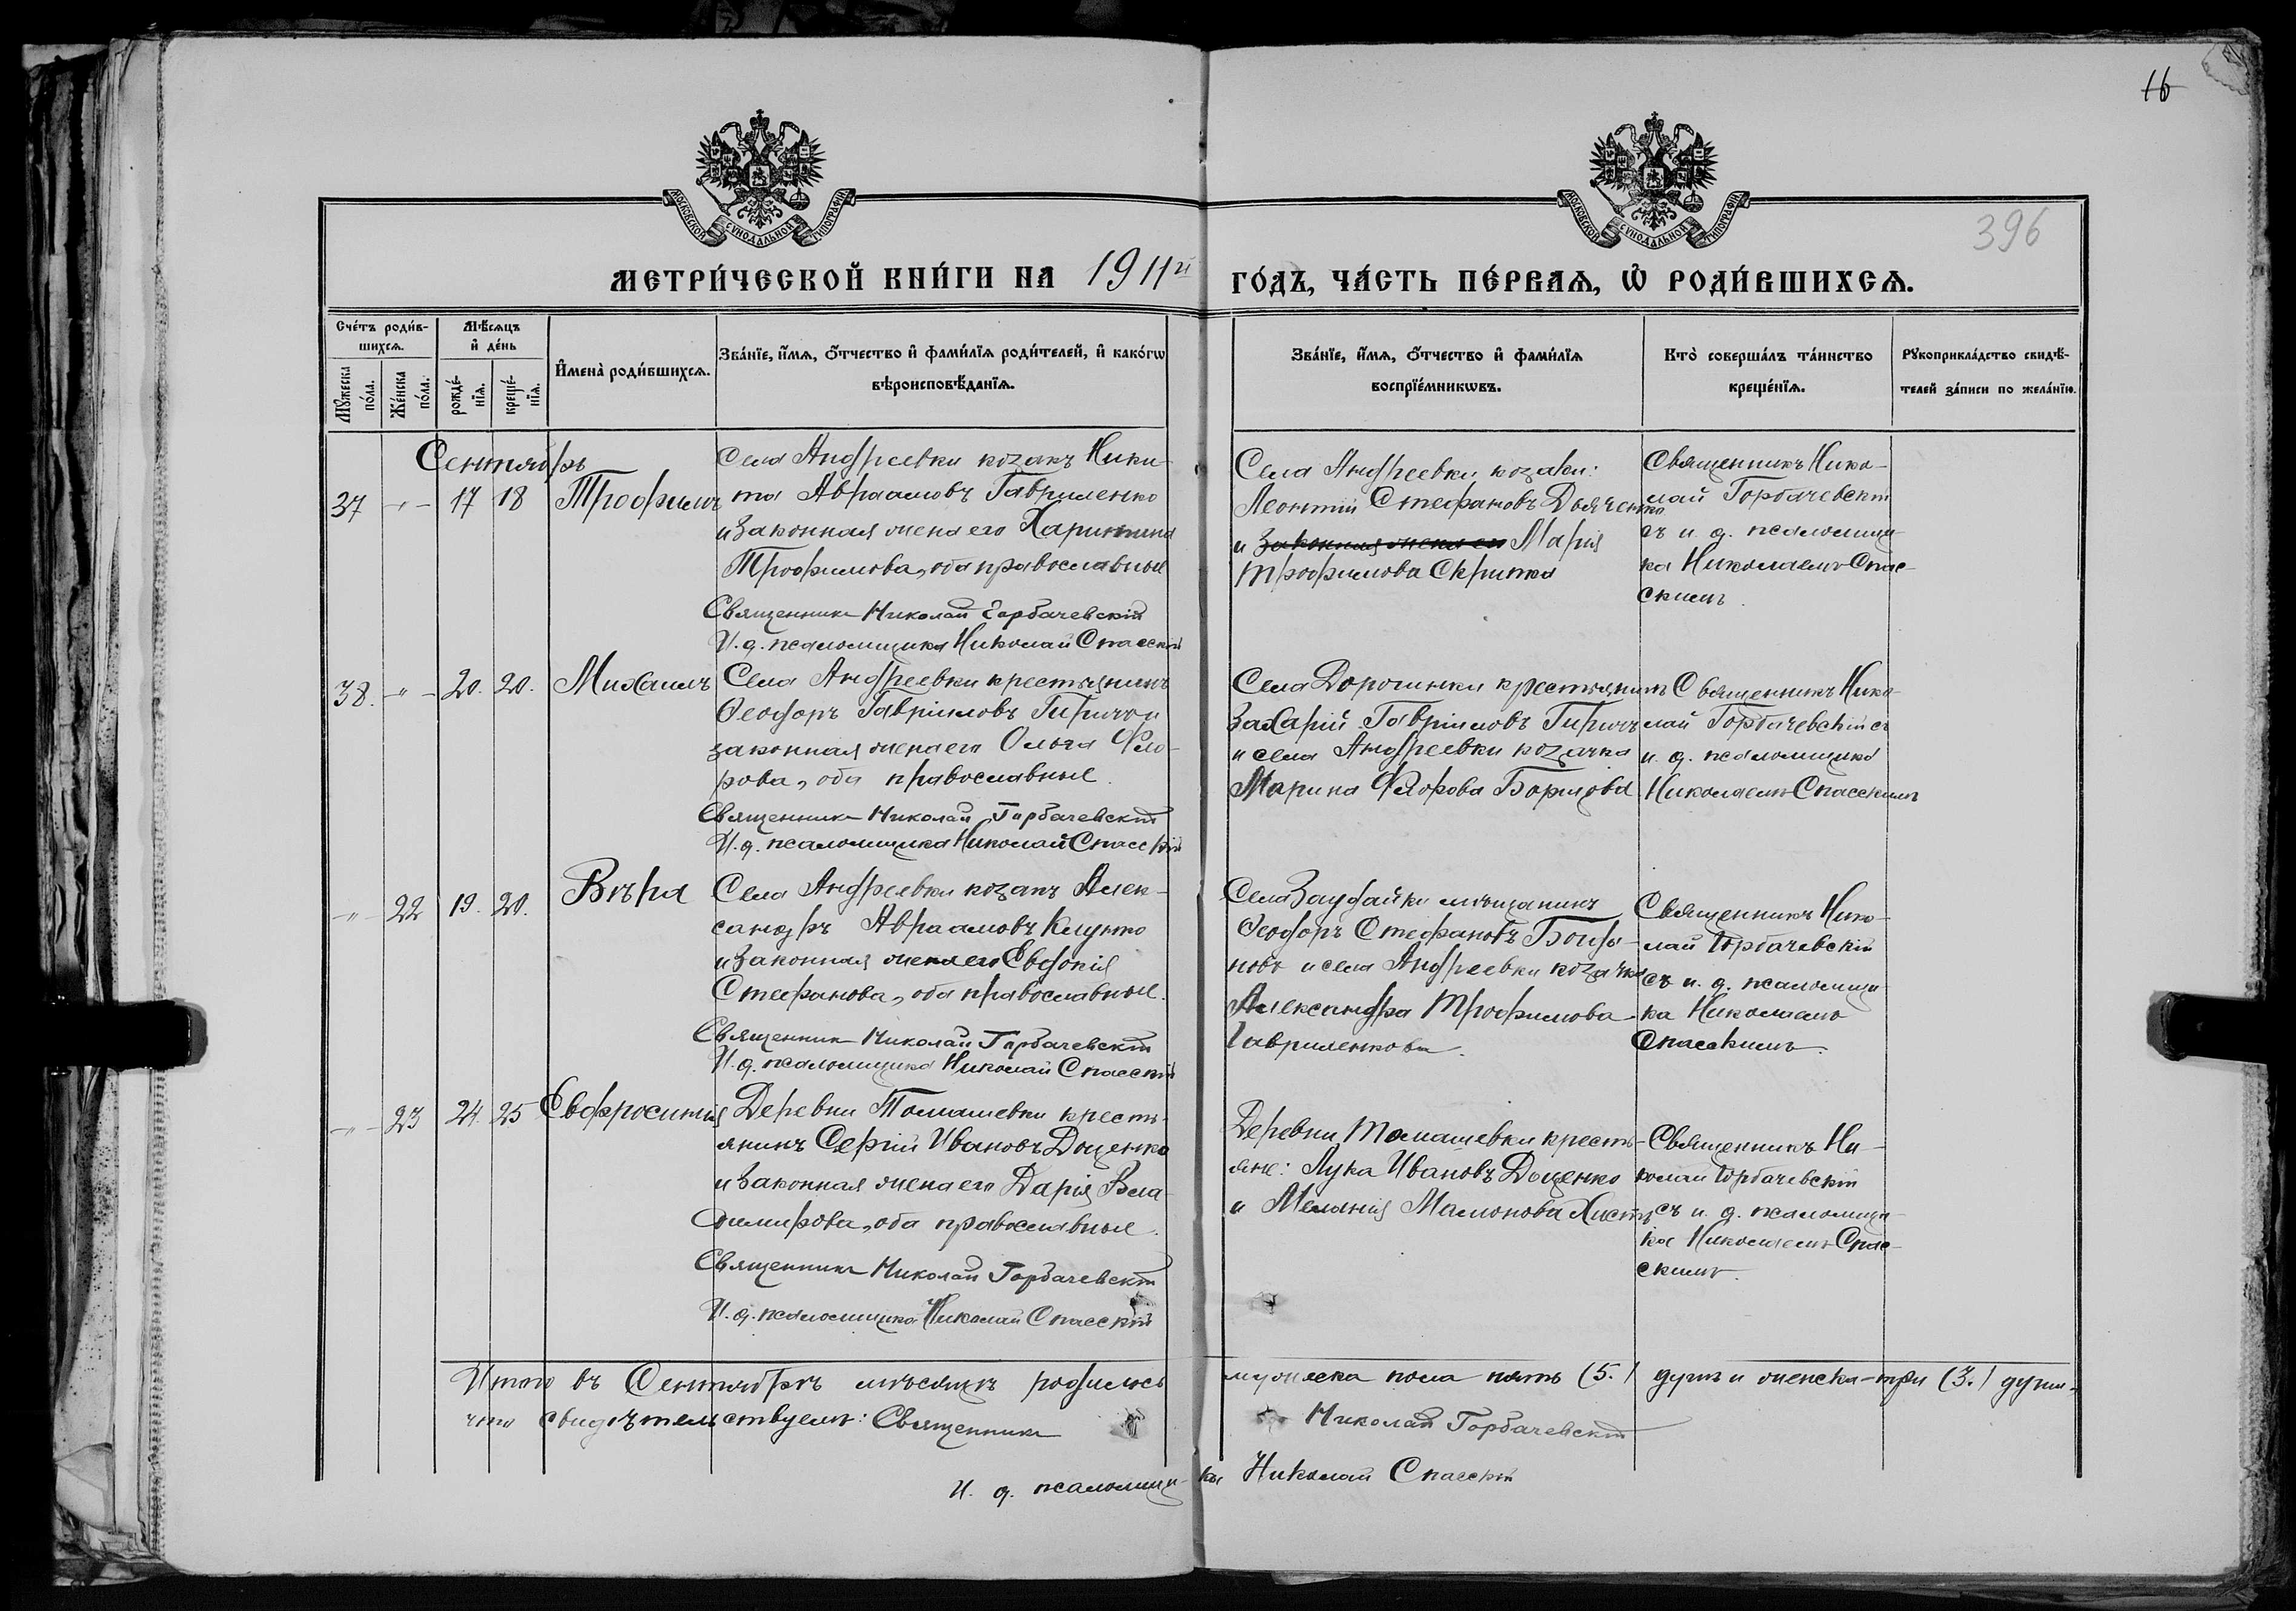 16
396
МОСКОВСКОЙ СѴНОДАЛЬНОЙ ТИПОГРАФІИ
МОСКОВСКОЙ СѴНОДАЛЬНОЙ ТИПОГРАФІИ
МЕТРИ́ЧЕСКОЙ КНИ́ГИ НА 1911й ГО́ДЪ, ЧА́СТЬ ПЕ́РВАѦ, Ѡ҆ РОДИ́ВШИХСѦ.
Сче́тъ роди́в-
шихсѧ.
Мꙋ́жеска по́ла.
Же́нска по́ла.
Мѣ́сѧцъ
и҆ де́нь
рожде́-
нїѧ.
креще́-
нїѧ.
И҆мена̀ роди́вшихсѧ.
Зва́нїе, и҆́мѧ, ѻ҆́тчество и҆ фами́лїѧ роди́телей, и҆ како́гѡ
вѣроисповѣ́данїѧ.
Зва́нїе, и҆́мѧ, ѻ҆́тчество и҆ фами́лїѧ
воспрїе́мникѡвъ.
Кто̀ соверша́лъ та́инство
креще́нїѧ.
Рꙋкоприкла́дство свидѣ́-
телей за́писи по жела́нїю.
Сентябрь
37 -"- 17 18 Трофимъ
Села Андреевки козакъ Ники-
та Авраамовъ Гавриленко
и законная жена его Харитина
Трофимова, оба православные
Священникъ Николай Горбачевскій
И. д. псаломщика Николай Спасскій
Села Андреевки козаки:
Леонтій Стефановъ Дьяченко
и законная жена его Марія
Трофимова Скрипка
Священникъ Нико-
лай Горбачевскій
съ и. д. псаломщи-
ка Николаемъ Спас-
скимъ.
38. -"- 20. 20. Михаилъ
Села Андреевки крестьянинъ
Ѳеодоръ Гавріиловъ Гиричъ и
законная жена его Ольга Фло-
рова, оба православные.
Священникъ Николай Горбачевскій
И. д. псаломщика Николай Спасскій
Села Дорогинки крестьянинъ
Захарій Гавріиловъ Гиричъ
и села Андреевки козачка
Марина Флорова Борщова
Священникъ Нико-
лай Горбачевскій съ
и. д. псаломщика
Николаемъ Спасскимъ
-"- 22 19. 20. Вѣра
Села Андреевки козакъ Алек-
сандръ Авраамовъ Клунко
и законная жена его Евдокія
Стефанова, оба православные.
Священникъ Николай Горбачевскій
И. д. псаломщика Николай Спасскій
Села Заудайки мѣщанинъ
Ѳеодоръ Стефановъ
и села Андреевки козачка
Александра Трофимова
Гавриленкова.
Священникъ Нико-
лай Горбачевскій
съ и. д. псаломщи-
ка Николаемъ
Спасскимъ.
-"- 23 24. 25 Евфросинія
Деревни Томашевки кресть-
янинъ Сергій Ивановъ Доценко
и законная жена его Дарія Вла-
димирова, оба православные.
Священникъ Николай Горбачевскій
И. д. псаломщика Николай Спасскій
Деревни Томашевки кресть-
яне: Лука Ивановъ Доценко
и Меланія Мамонова
Священникъ Ни-
колай Горбачевскій
съ и. д. псаломщи-
ка Николаемъ Спас-
скимъ.
Итого въ Сентябрѣ мѣсяцѣ родилось мужеска пола пять (5.) душъ и женска - три (3.) души,
что свидѣтельствуемъ: Священникъ Николай Горбачевскій
И. д. псаломщи-ка Николай Спасскій